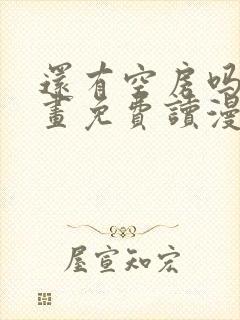 還有空房吗
畫免費讀漫
屋宣知宏